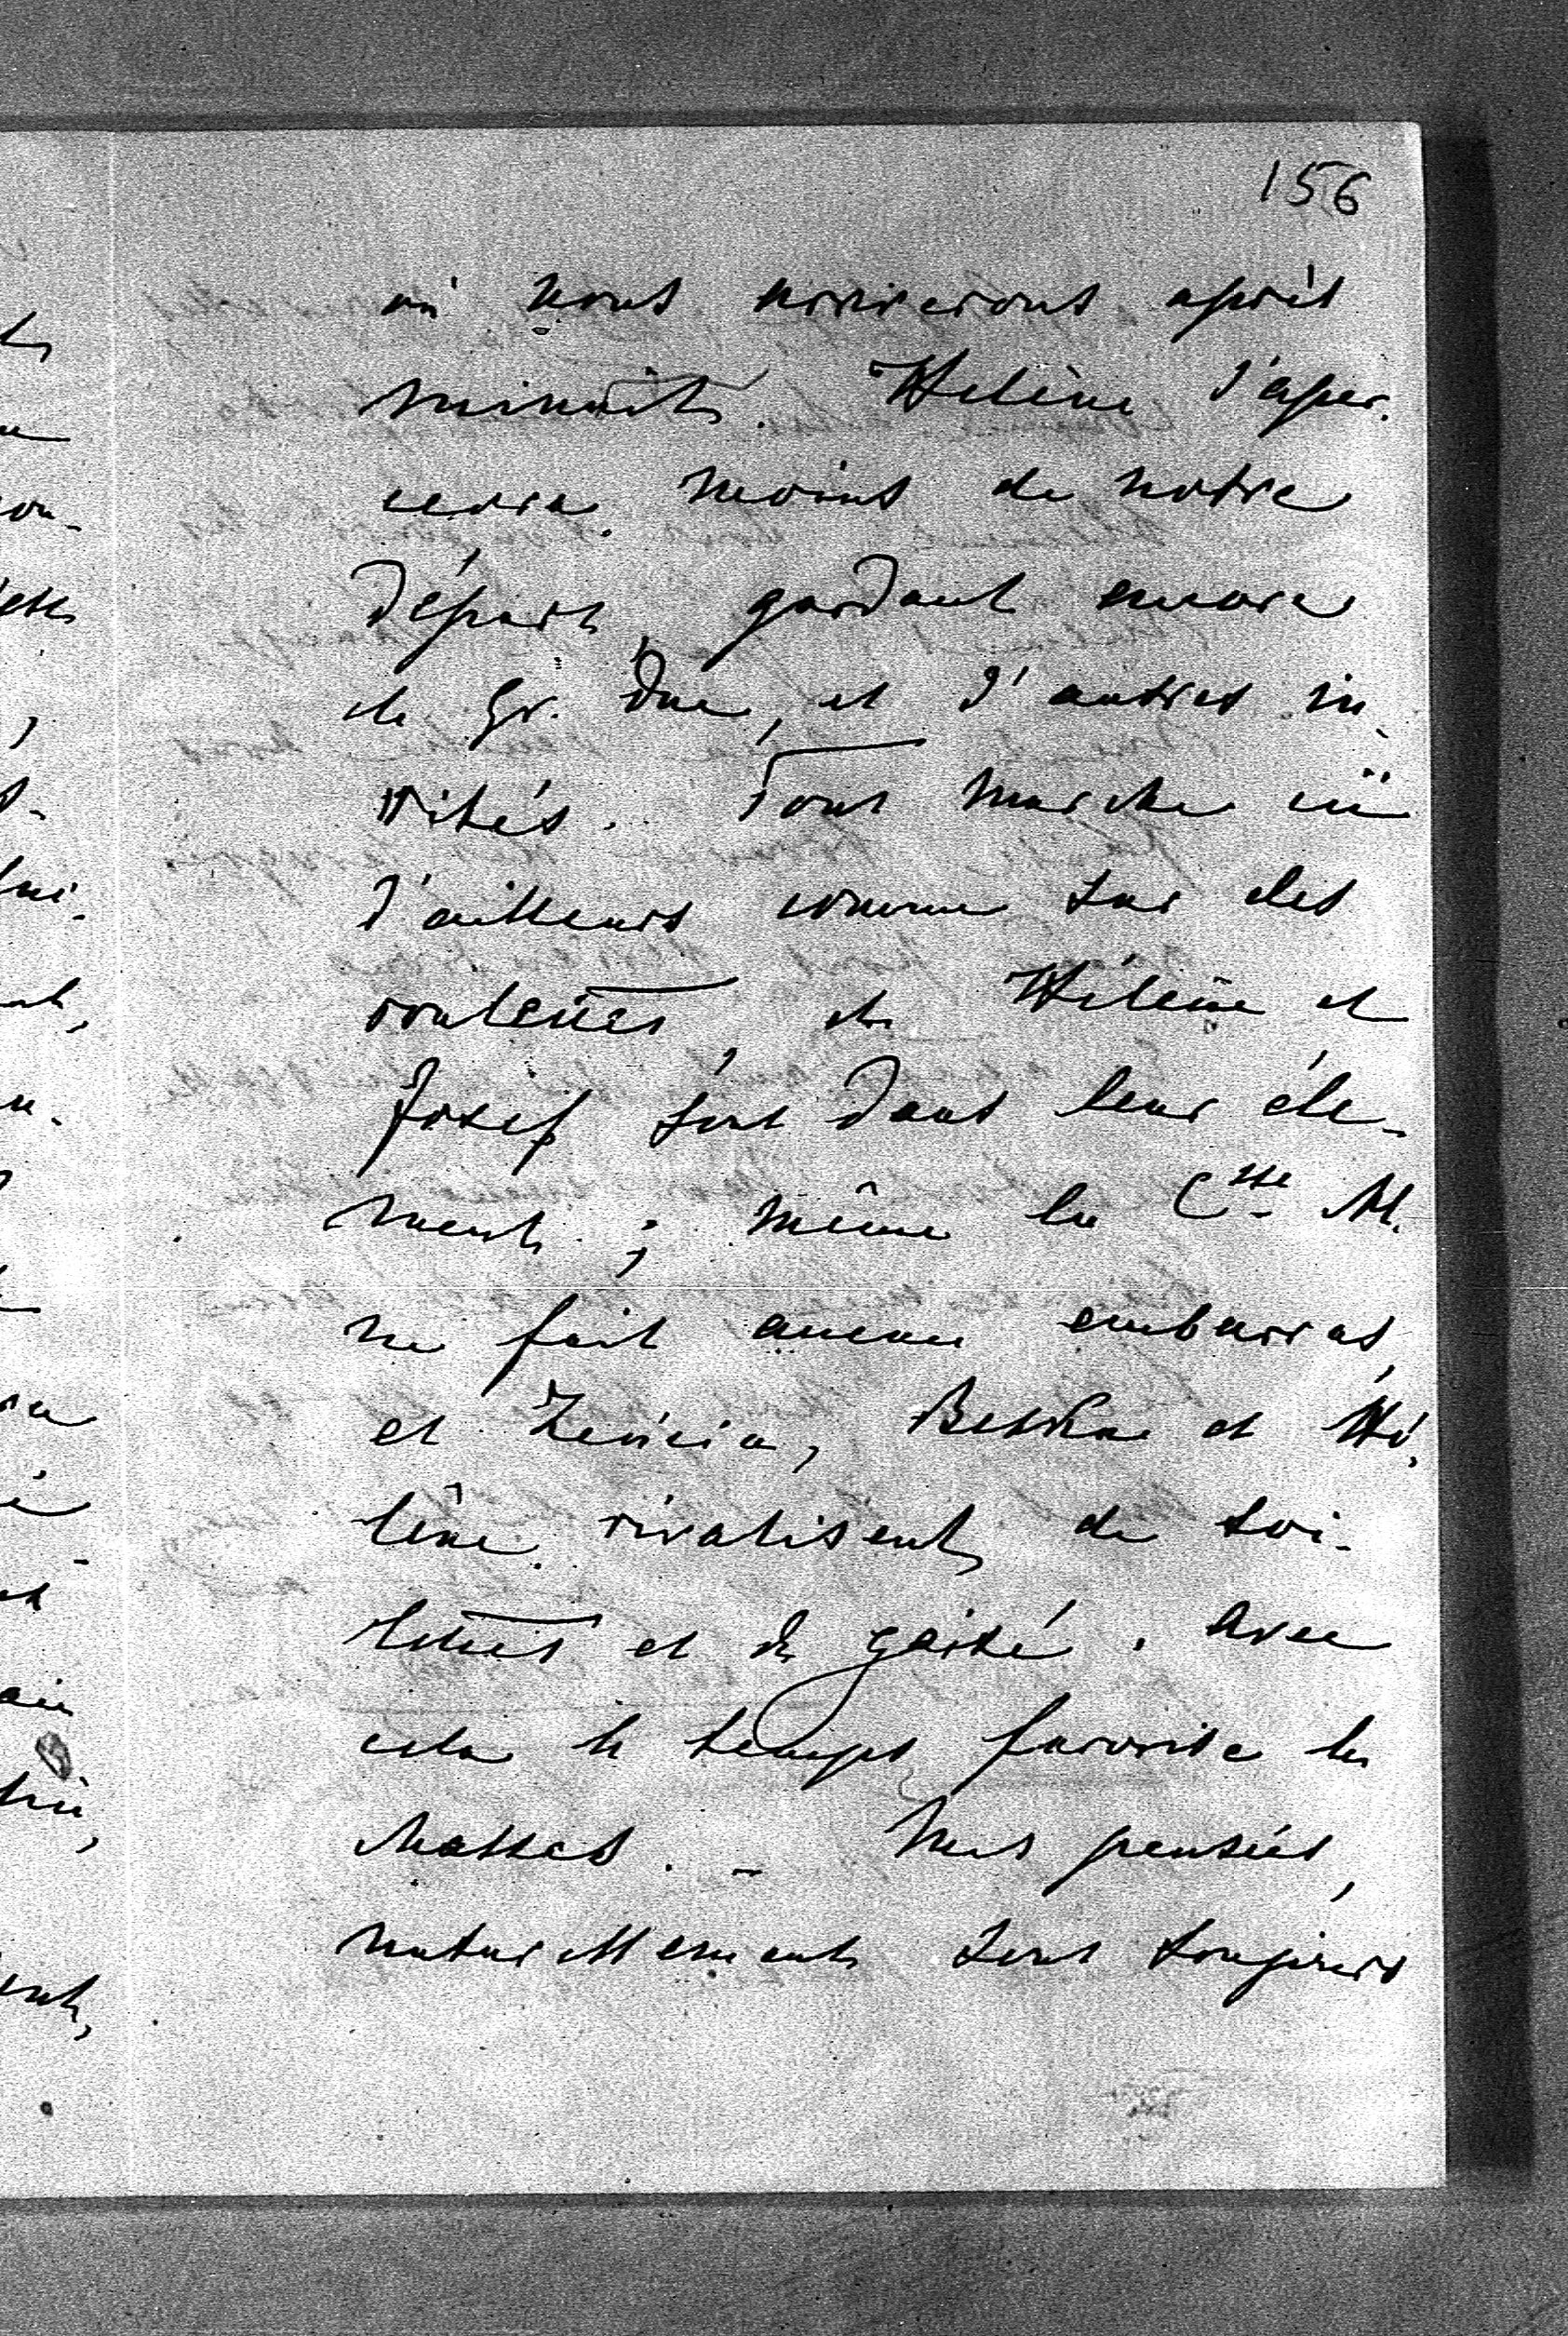 156
où nous arriverons après
minuit. Hélène s'aper-
cevra moins de notre
départ, gardant encore
le Gr. Duc, et d'autres in-
vités. Tout marche ici
d'ailleurs comme sur des
roulettes, et Hélène et
Josef sont dans leur élé-
ment ; même la Csse M.
ne fait aucun embarras,
et et Hé-
lène rivalisent de toi-
lettes et de gaité. Avec
cela le temps favorise les
chasses. - Mes pensées,
naturellement sont toujours